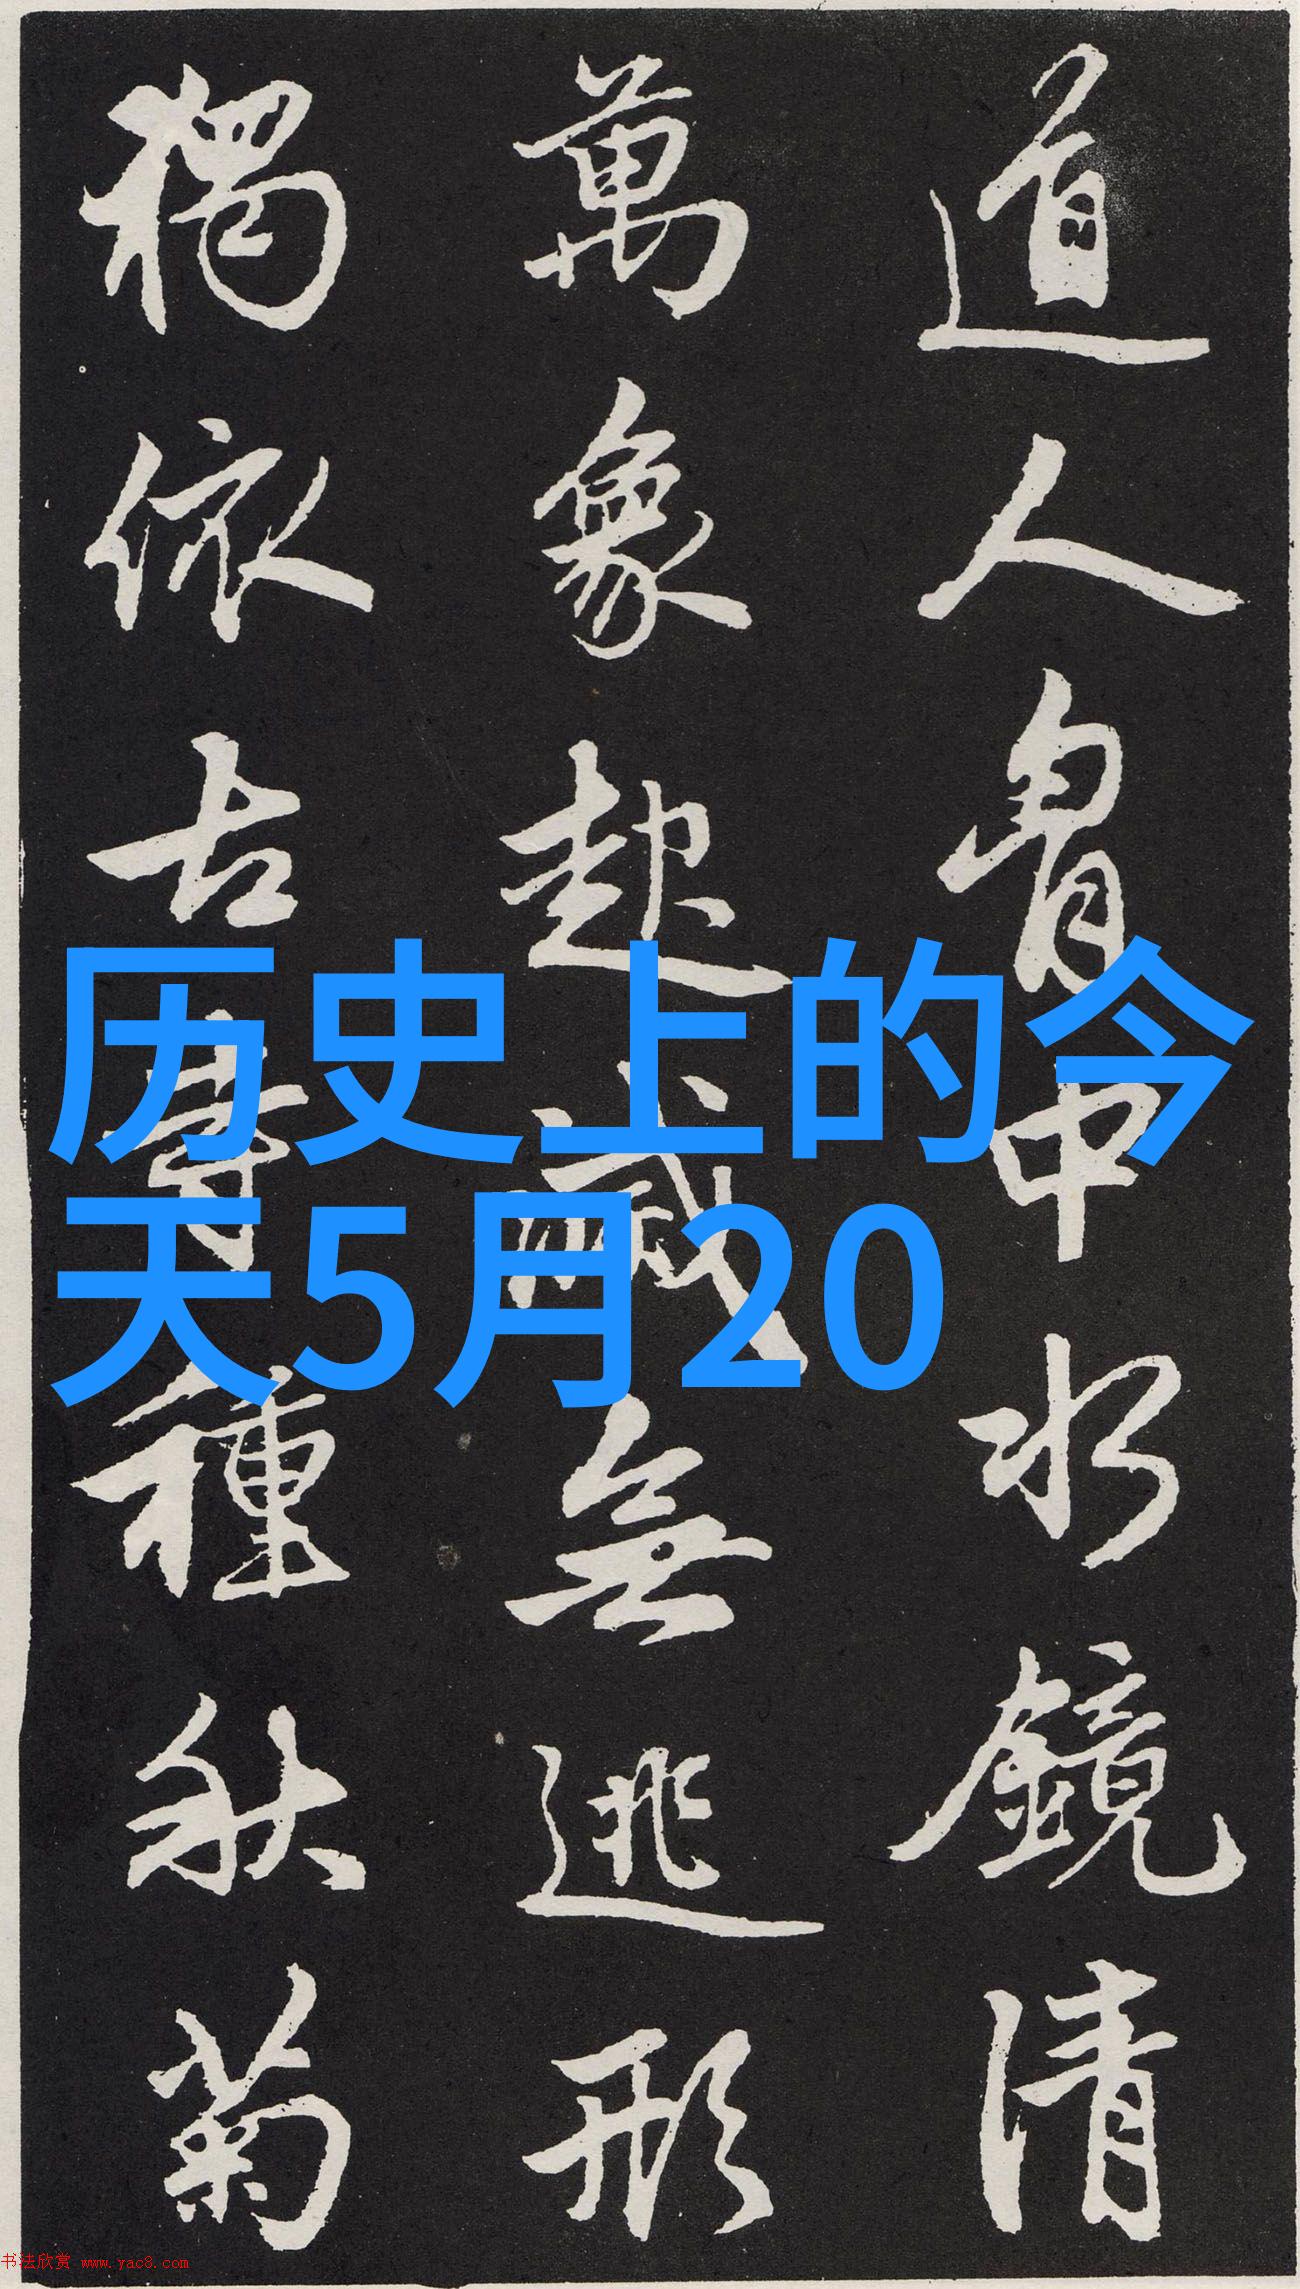 道人胷中水鏡清
萬象起滅無逃形
獨依古寺種秋菊
历史上的今
天5月20
书法欣赏 www.yac8.com